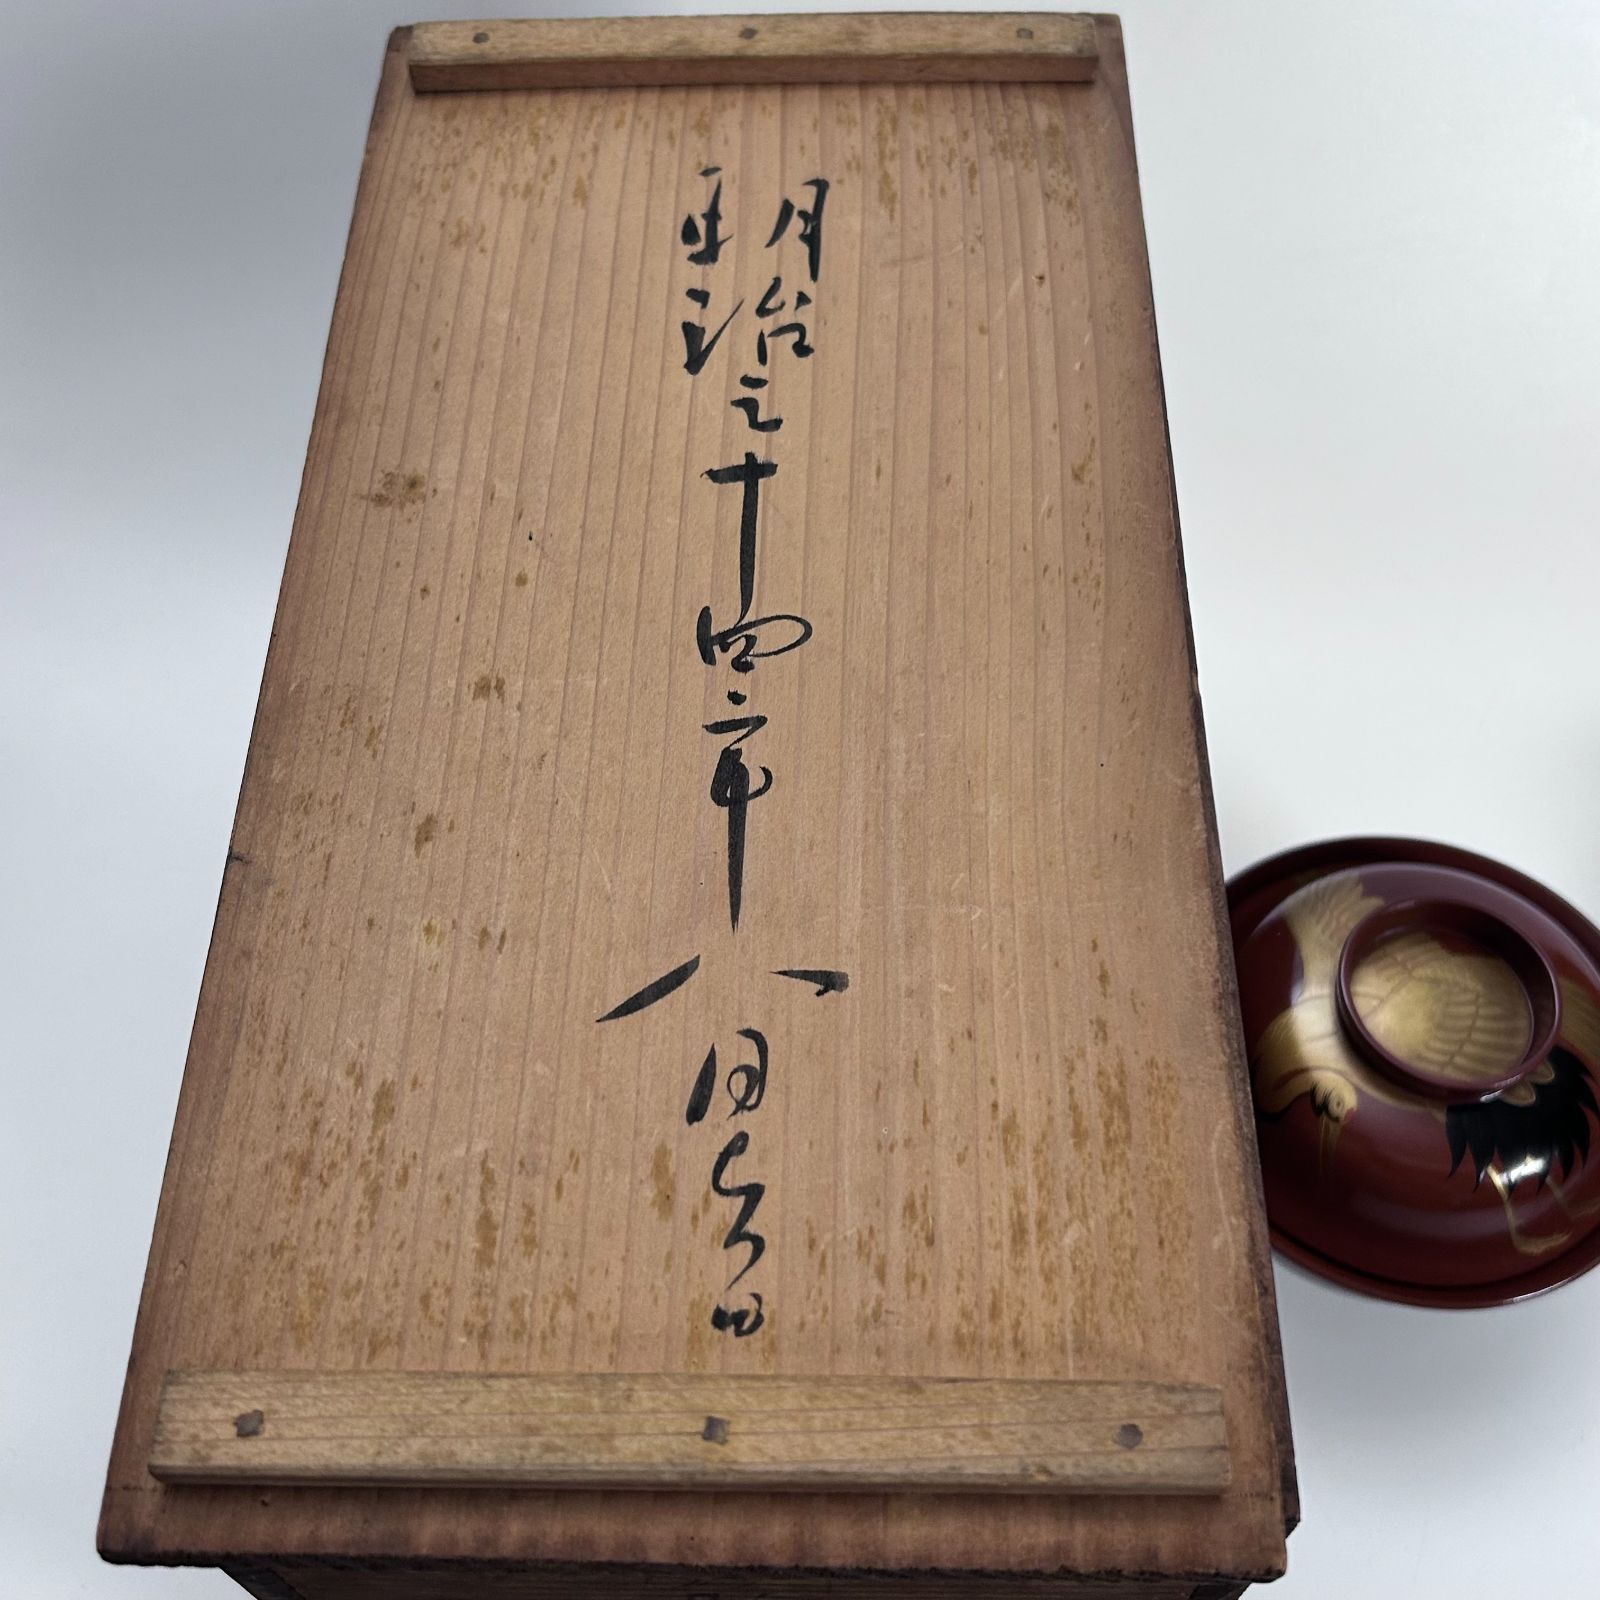 明治三十四年八月吉日